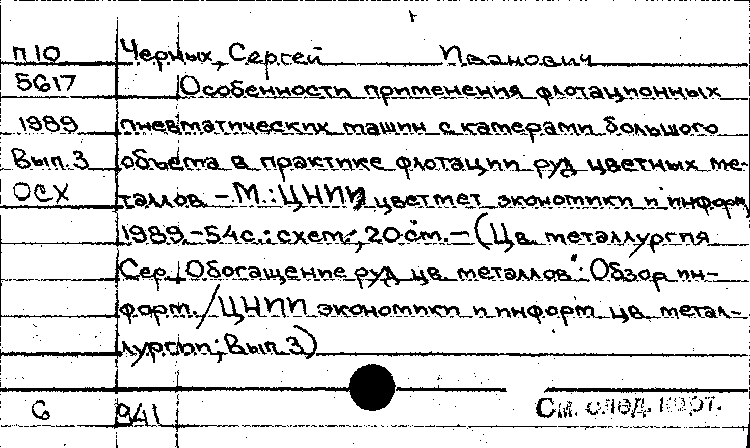 П10 Черных, Сергей Иванович
5617 Особенности применения флотационных
1989 пневматических машин с камерами большого
Вып.3 объема в практике флотации руд цветных ме-
ОСХ таллов - М.: ЦНИИ цветмет экономики и информ,
1989.-54с.: схем.; 20см. - (Цв. металлургия
Сер. "Обогащение руд цв. металлов": Обзор ин-
форм. / ЦНИИ экономики и информ. цв. метал-
лургии; Вып. 3)
б 941 См. след. карт.